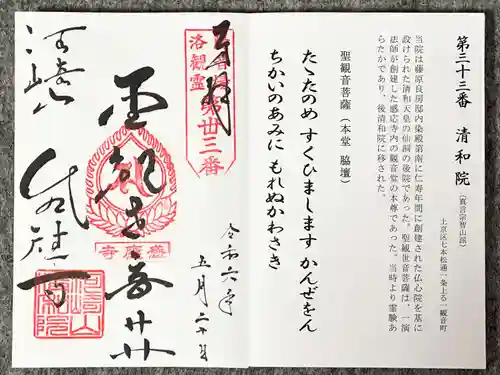 第三十三番 清和院 (真言宗智山派)
上京区七本松通一条上る一観音町
当院は藤原良房邸内染殿第南に仁寿年間に創建された仏心院を基に
設けられた清和天皇の仙洞の後院であった。聖観世音菩薩は、一演
法師が創建した感応寺内の観音堂の本尊であった。当時より霊験あ
らたかであり、後清和院に移された。
聖観音菩薩(本堂 脇壇)
たゝたのめ すくひまします かんぜをん
ちかいのあみに もれぬかわさき
奉拝
洛
観
霊
第卅三番
聖観世音
河崎
感應寺
令和六年
五月二十日